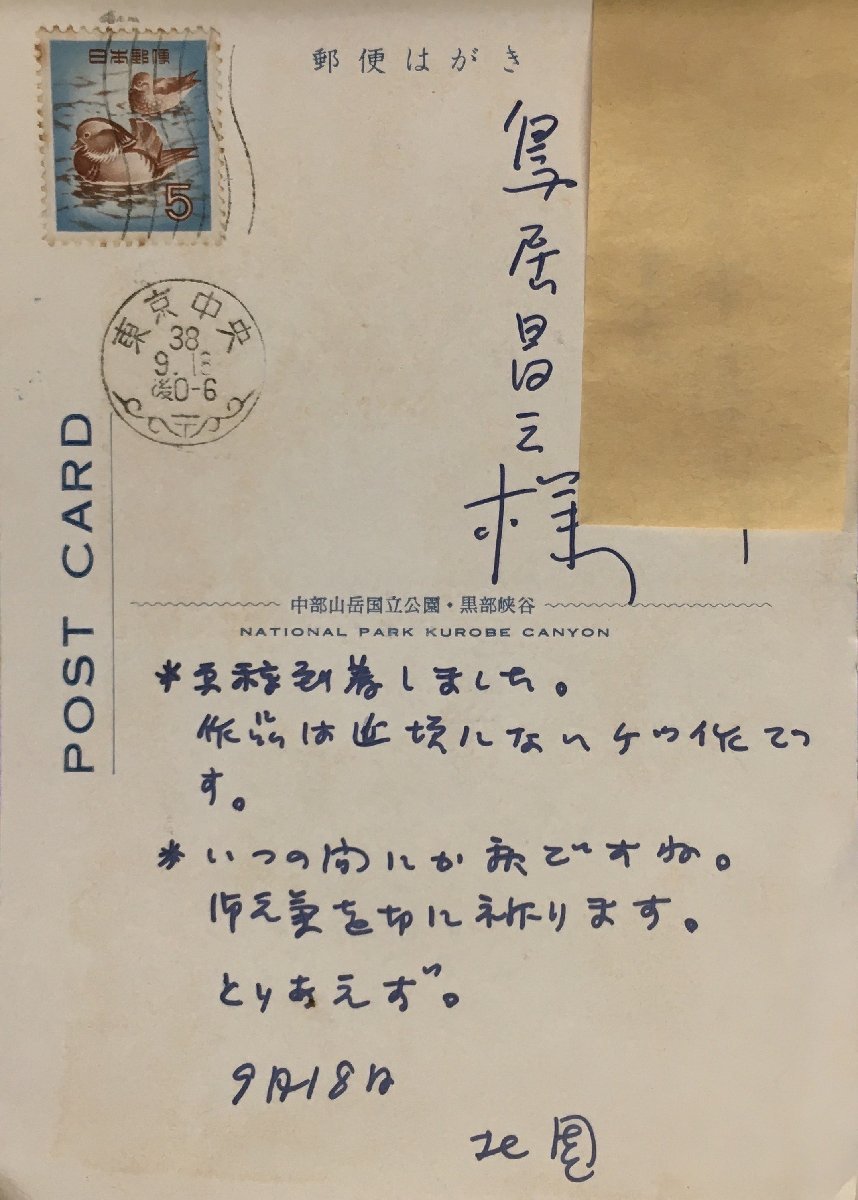 日本郵便
5
郵便はがき
鳥居昌三
様
東京中央
38
9.18
後0-6
POST CARD
中部山岳国立公園・黒部峡谷
NATIONAL PARK KUROBE CANYON
*玉稿到着しました。
作品は近頃にないケッ作で
す。
*いつの間にか秋ですね。
御元気を切に祈ります。
とりあえず。
9月18日
北園